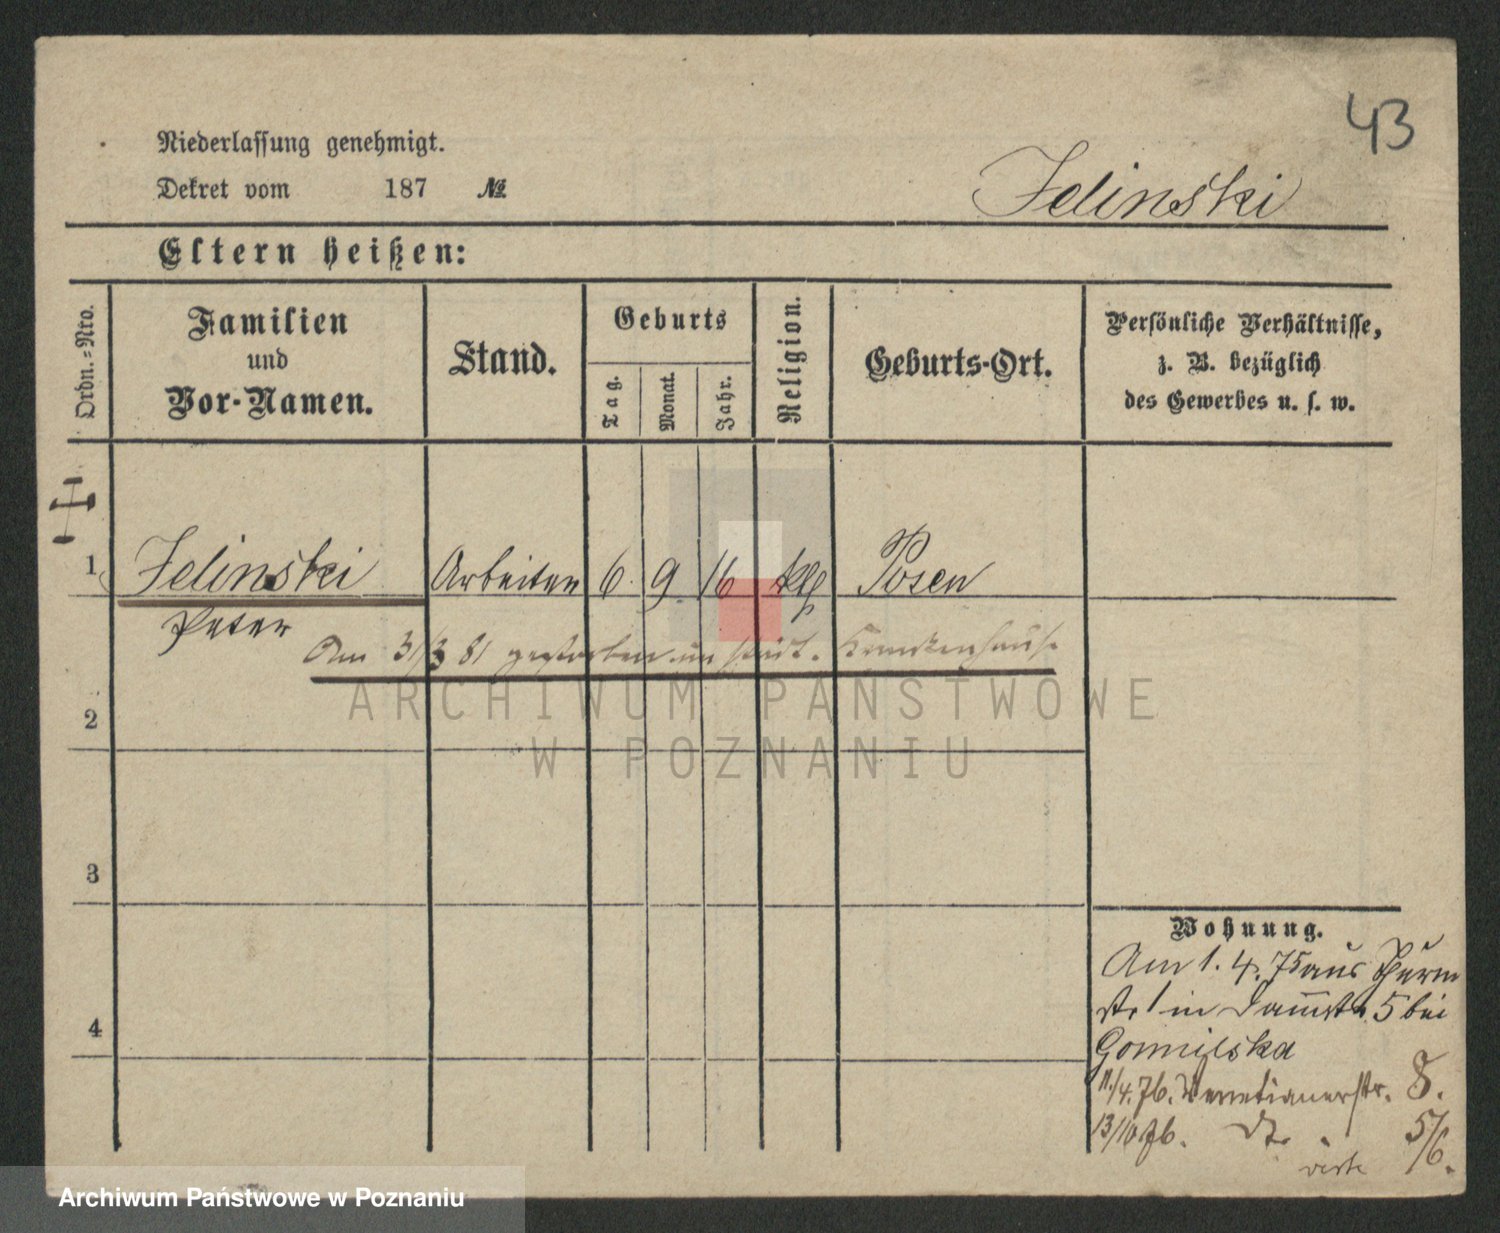 43
Niederlassung genehmigt.
Dekret vom 187 №
Jelinski
Eltern heißen:
Ordn.=Nro.
Familien
und
Vor-Namen.
Stand.
Geburts
Tag.
Monat.
Jahr.
Religion.
Geburts-Ort.
Persönliche Verhältnisse,
z. B. bezüglich
des Gewerbes u. s. w.
1 Jelinski Arbeiter 6 9 16 Posen
Peter
Am 31/3 81 gestorben im städt. Krankenhause
2
3
4
Wohnung.
Am 1. 4. 75 aus Thurm
str 1 in Dammstr 5 bei
11./4. 76. Venetianerstr. 8.
13/10 76. do. 5/6.
ARCHIWUM PAŃSTWOWE
W POZNANIU
Archiwum Państwowe w Poznaniu